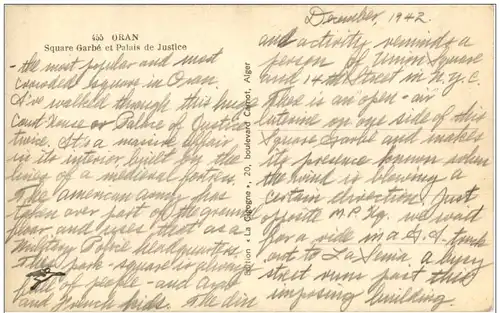 455 ORAN
Square Garbé et Palais de Justice
- the most popular and most
crowded square in Oran.
I've walked through this huge
Court House or Palace of Justice
twice. It's a massive affair
in its interior built on the
lines of a medieval fortress.
The American Army has
taken over part of the ground
floor and uses that as a
Military Police headquarters.
This park-square is always
full of people - and Arab
and French kids. The din
Edition « La Cigogne », 20, boulevard Carnot, Alger
December, 1942.
and activity reminds a
person of Union Square
and 14th Street in N.Y.C.
There is an "open-air"
latrine on one side of this
Square Garbé and makes
its presence known when
the wind is blowing a
certain direction. Just
opposite M.P. Hq. we wait
for a ride in a G.I. truck
out to La Senia. A busy
street runs past this
imposing building.